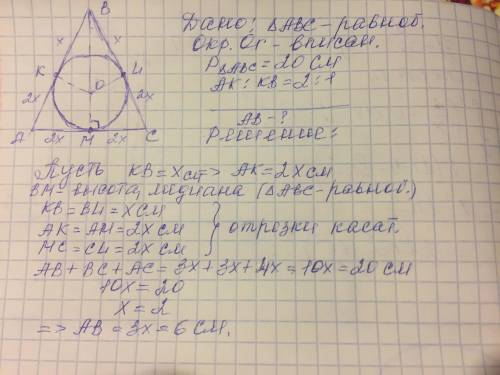 B
x
x
K
Ц
O
2x
2x
A
2x
M
2x
C
Дано: △ABC - равноб.
Окр. Ог - вписан.
P△ABC = 20 см
AK : KB = 2 : 1
AB - ?
Решение:
Пусть KB = x см => AK = 2x см
BM - высота, медиана (△ABC - равноб.)
KB = BЦ = x см
AK = AM = 2x см
MC = CЦ = 2x см
} отрезки касат.
AB + BC + AC = 3x + 3x + 4x = 10x = 20 см
10x = 20
x = 2
=> AB = 3x = 6 см.